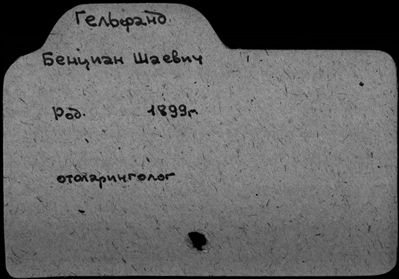 Гельфанд
Бенциан Шаевич
Род. 1899г.
отоларинголог